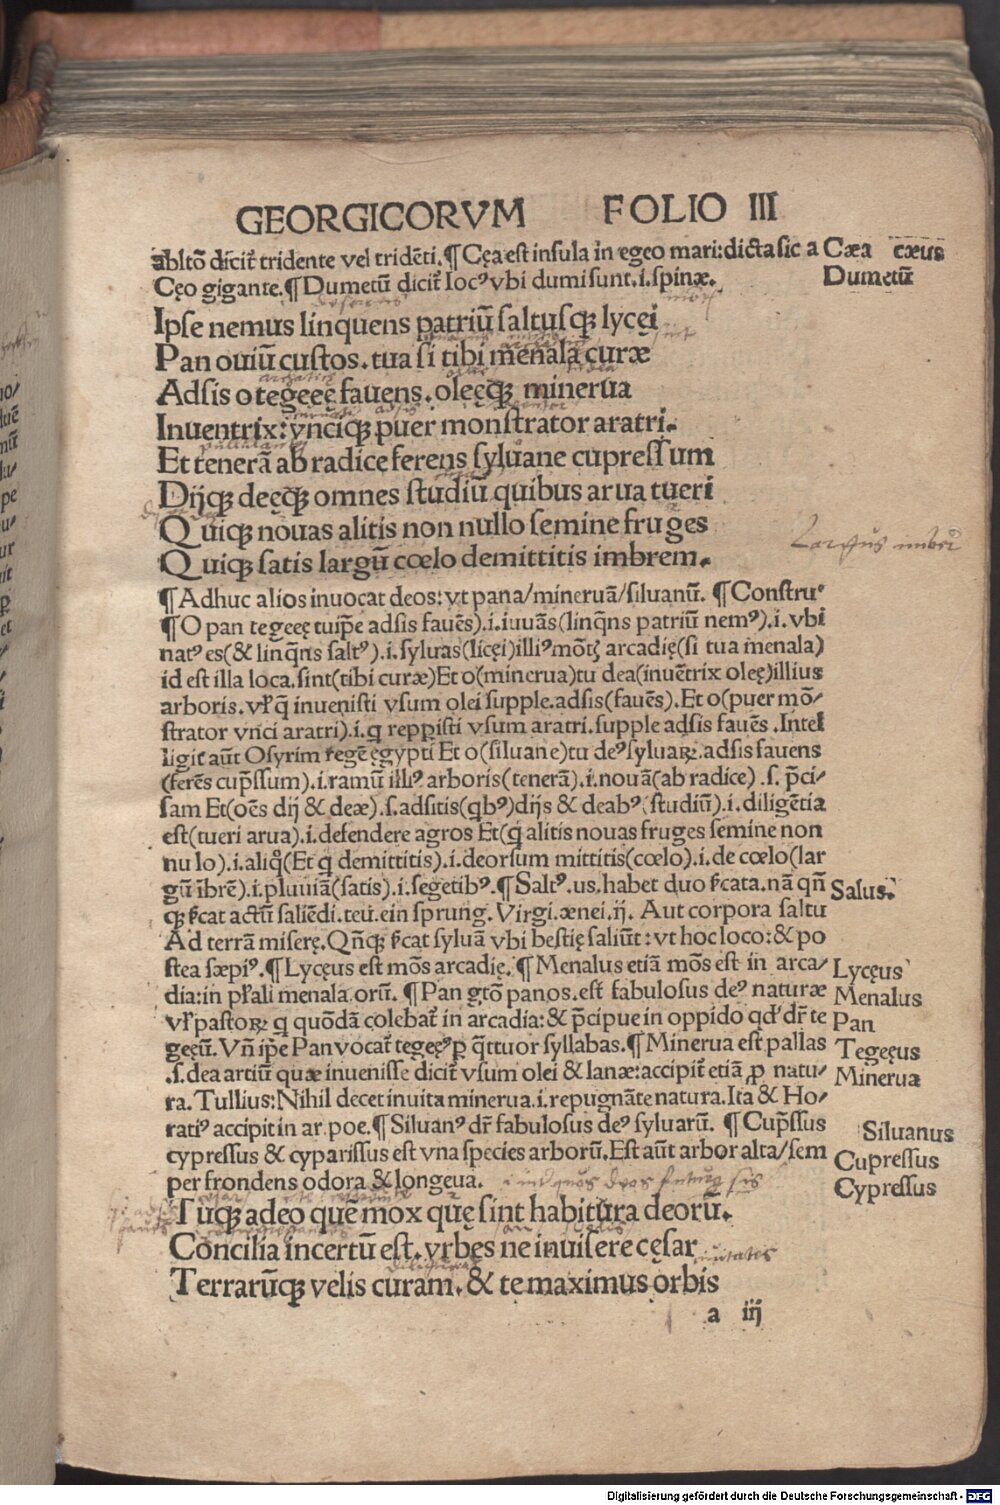 GEORGICORVM FOLIO III
abltō dicit̃ tridente vel tridēti.¶Cęa est insula in egeo mari:dicta sic a Cæa cæus
Cęo gigante.¶Dumetū dicit̃ locꝰ vbi dumi sunt.i.spinæ. Dumetū
Ipse nemus linquens patriū saltusqꝫ lycęi
Pan ouiū custos.tua si tibi menala curæ
Adsis o tegeeę fauens.oleęqꝫ minerua
Inuentrix:vnciqꝫ puer monstrator aratri.
Et tenerā ab radice ferens syluane cupressum
Dijqꝫ deęqꝫ omnes studiū quibus arua tueri
Quiqꝫ nouas alitis non nullo semine fruges
Quiqꝫ satis largū cœlo demittitis imbrem.
Largus imbri
¶Adhuc alios inuocat deos:vt pana/mineruā/siluanū. ¶Construꝰ
¶O pan tegeeę tuip̄e adsis fauēs).i.iuuās(linq̄ns patriū nemꝰ).i.vbi
natꝰ es(& linq̄ns saltꝰ).i.syluas(licęi)illiꝰ mōtꝭ arcadię(si tua menala)
id est illa loca.sint(tibi curæ)Et o(minerua)tu dea(inuētrix oleę)illius
arboris.vl̄ q̄ inuenisti vsum olei supple.adsis(fauēs).Et o(puer mō/
strator vnci aratri).i.q repp̱isti vsum aratri.supple adsis fauēs .Intel
ligit aūt Osyrim regē ęgypti Et o(siluane)tu deꝰ syluaꝝ.adsis fauens
(ferēs cup̄ssum).i.ramū illiꝰ arboris(tenerā).i.nouā(ab radice) .s. p̄ci/
sam Et(oēs dij & deæ).s.adsitis(qbꝰ)dijs & deabꝰ(studiū).i.diligētia
est(tueri arua).i.defendere agros Et(q alitis nouas fruges semine non
nulo).i.aliq̊(Et q demittitis).i.deorsum mittitis(cœlo).i.de cœlo(lar
gū ībrē).i.pluuiā(satis).i.segetibꝰ.¶Saltꝰ.us.habet duo sꝫcata.nā qn̄ Salus.
qꝫ sꝫcat actū saliēdi.teu.ein sprung.Virgi.ænei.ij. Aut corpora saltu
Ad terrā miserę.Qn̄qꝫ sꝫcat syluā vbi bestię saliūt:vt hoc loco:& po
stea sæpiꝰ.¶Lycęus est mōs arcadię.¶Menalus etiā mōs est in arca/ Lycęus
dia:in pl̄ali menala.orū. ¶Pan gtō panos.est fabulosus deꝰ naturæ Menalus
vl̄ pastoꝝ q quōdā colebat̃ in arcadia:& p̄cipue in oppido qd' dr̄ te Pan
geęū.Vn̄ ip̄e Pan vocat̃ tegeęꝰ p̱ q̄ttuor syllabas.¶Minerua est pallas Tegeęus
.s.dea artiū quæ inuenisse dicit̃ vsum olei & lanæ:accipit̃ etiā ꝓ natu/ Minerua
ra.Tullius:Nihil decet inuita minerua.i.repugnāte natura.Ita & Ho/
ratiꝰ accipit in ar.poe.¶Siluanꝰ dr̄ fabulosus deꝰ syluarū. ¶Cup̄ssus Siluanus
cypressus & cyparissus est vna species arborū.Est aūt arbor alta/sem Cupressus
per frondens odora & longeua. Cypressus
Tuqꝫ adeo quē mox quę sint habitura deorū.
Concilia incertū est.vrbes ne inuisere cęsar
Terrarūqꝫ velis curam.& te maximus orbis
a iij
Digitalisierung gefördert durch die Deutsche Forschungsgemeinschaft - DFG